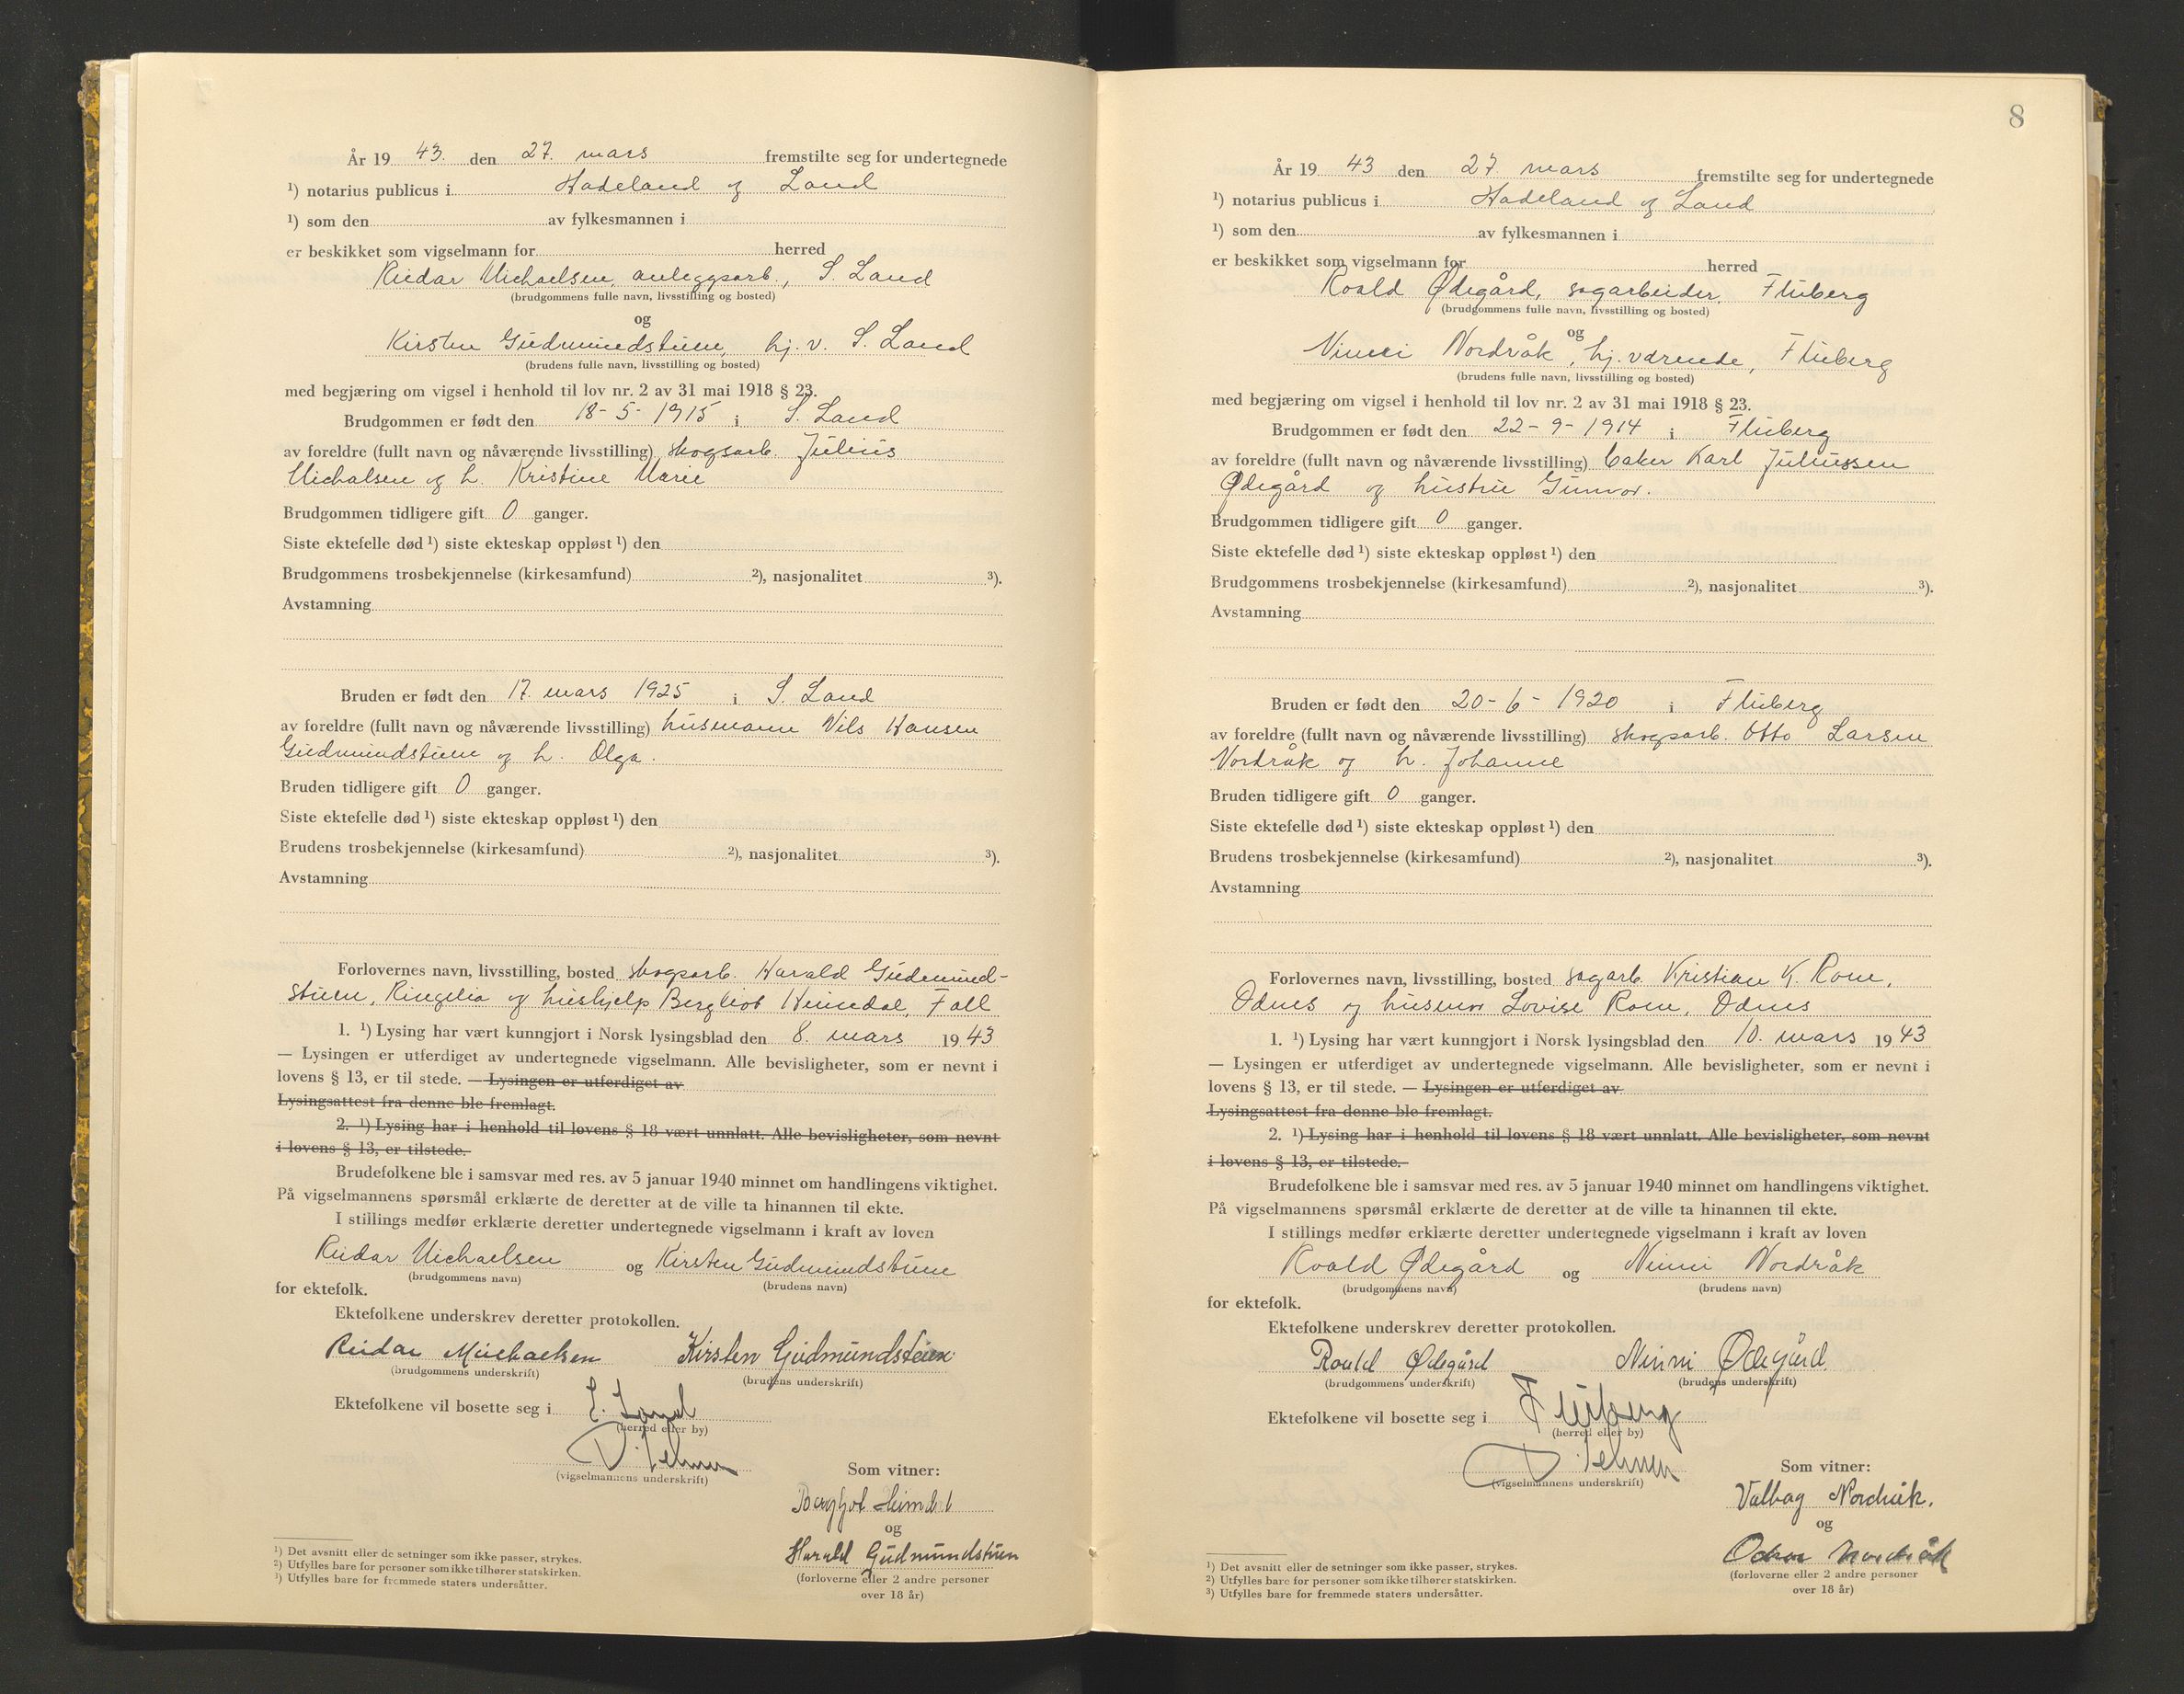 År 19 43. den 27. mars fremstilte seg for undertegnede
¹) notarius publicus i Hadeland og Land
¹) som den av fylkesmannen i
er beskikket som vigselmann for herred
Reidar Michaelsen, anleggsarb., S. Land
(brudgommens fulle navn, livsstilling og bosted)
og
Kirsten Gudmundstuen, hj. v. S. Land
(brudens fulle navn, livsstilling og bosted)
med begjæring om vigsel i henhold til lov nr. 2 av 31 mai 1918 § 23.
Brudgommen er født den 18-5-1915 i S. Land
av foreldre (fullt navn og nåværende livsstilling) skogsarb. Julius
Michalsen og h. Kristine Marie
Brudgommen tidligere gift 0 ganger.
Siste ektefelle død ¹) siste ekteskap oppløst ¹) den
Brudgommens trosbekjennelse (kirkesamfund) ²), nasjonalitet ³).
Avstamning
Bruden er født den 17. mars 1925 i S. Land
av foreldre (fullt navn og nåværende livsstilling) husmann Nils Hansen
Gudmundstuen og h. Olga.
Bruden tidligere gift 0 ganger.
Siste ektefelle død ¹) siste ekteskap oppløst ¹) den
Brudens trosbekjennelse (kirkesamfund) ²), nasjonalitet ³).
Avstamning
Forlovernes navn, livsstilling, bosted skogsarb. Harald Gudmund-
stuen, Ringelia og hushjelp Bergliot Heimdal, Fall
1. ¹) Lysing har vært kunngjort i Norsk lysingsblad den 8. mars 19 43
— Lysingen er utferdiget av undertegnede vigselmann. Alle bevisligheter, som er nevnt i
lovens § 13, er til stede. — Lysingen er utferdiget av
Lysingsattest fra denne ble fremlagt.
2. ¹) Lysing har i henhold til lovens § 18 vært unnlatt. Alle bevisligheter, som nevnt
i lovens § 13, er tilstede.
Brudefolkene ble i samsvar med res. av 5 januar 1940 minnet om handlingens viktighet.
På vigselmannens spørsmål erklærte de deretter at de ville ta hinannen til ekte.
I stillings medfør erklærte deretter undertegnede vigselmann i kraft av loven
Reidar Michaelsen og Kirsten Gudmundstuen
(brudgommens navn) (brudens navn)
for ektefolk.
Ektefolkene underskrev deretter protokollen.
Reidar Michaelsen Kirsten Gudmundstuen
(brudgommens underskrift) (brudens underskrift)
Ektefolkene vil bosette seg i S. Land
(herred eller by)
(vigselmannens underskrift)
Som vitner:
Bergljot Heimdal
og
Harald Gudmundstuen
(forloverne eller 2 andre personer
over 18 år)
¹) Det avsnitt eller de setninger som ikke passer, strykes.
²) Utfylles bare for personer som ikke tilhører statskirken.
³) Utfylles bare for fremmede staters undersåtter.
8
År 19 43 den 27 mars fremstilte seg for undertegnede
¹) notarius publicus i Hadeland og Land
¹) som den av fylkesmannen i
er beskikket som vigselmann for herred
Roald Ødegård, sagarbeider, Fluberg
(brudgommens fulle navn, livsstilling og bosted)
og
Ninni Nordråk, hj. værende, Fluberg
(brudens fulle navn, livsstilling og bosted)
med begjæring om vigsel i henhold til lov nr. 2 av 31 mai 1918 § 23.
Brudgommen er født den 22-9-1914 i Fluberg
av foreldre (fullt navn og nåværende livsstilling) baker Karl Juliussen
Ødegård og hustru Gunvor.
Brudgommen tidligere gift 0 ganger.
Siste ektefelle død ¹) siste ekteskap oppløst ¹) den
Brudgommens trosbekjennelse (kirkesamfund) ²), nasjonalitet ³).
Avstamning
Bruden er født den 20-6-1920 i Fluberg
av foreldre (fullt navn og nåværende livsstilling) skogsarb. Otto Larsen
Nordråk og h. Johanne
Bruden tidligere gift 0 ganger.
Siste ektefelle død ¹) siste ekteskap oppløst ¹) den
Brudens trosbekjennelse (kirkesamfund) ²), nasjonalitet ³).
Avstamning
Forlovernes navn, livsstilling, bosted sagarb. Kristian K. Rom,
Odnes og husmor Lovise Rom, Odnes
1. ¹) Lysing har vært kunngjort i Norsk lysingsblad den 10. mars 19 43
— Lysingen er utferdiget av undertegnede vigselmann. Alle bevisligheter, som er nevnt i
lovens § 13, er til stede. — Lysingen er utferdiget av
Lysingsattest fra denne ble fremlagt.
2. ¹) Lysing har i henhold til lovens § 18 vært unnlatt. Alle bevisligheter, som nevnt
i lovens § 13, er tilstede.
Brudefolkene ble i samsvar med res. av 5 januar 1940 minnet om handlingens viktighet.
På vigselmannens spørsmål erklærte de deretter at de ville ta hinannen til ekte.
I stillings medfør erklærte deretter undertegnede vigselmann i kraft av loven
Roald Ødegård og Ninni Nordråk
(brudgommens navn) (brudens navn)
for ektefolk.
Ektefolkene underskrev deretter protokollen.
Roald Ødegård Ninni Ødegård
(brudgommens underskrift) (brudens underskrift)
Ektefolkene vil bosette seg i Fluberg
(herred eller by)
(vigselmannens underskrift)
Som vitner:
Valbag Nordråk.
og
Nordråk
(forloverne eller 2 andre personer
over 18 år)
¹) Det avsnitt eller de setninger som ikke passer, strykes.
²) Utfylles bare for personer som ikke tilhører statskirken.
³) Utfylles bare for fremmede staters undersåtter.